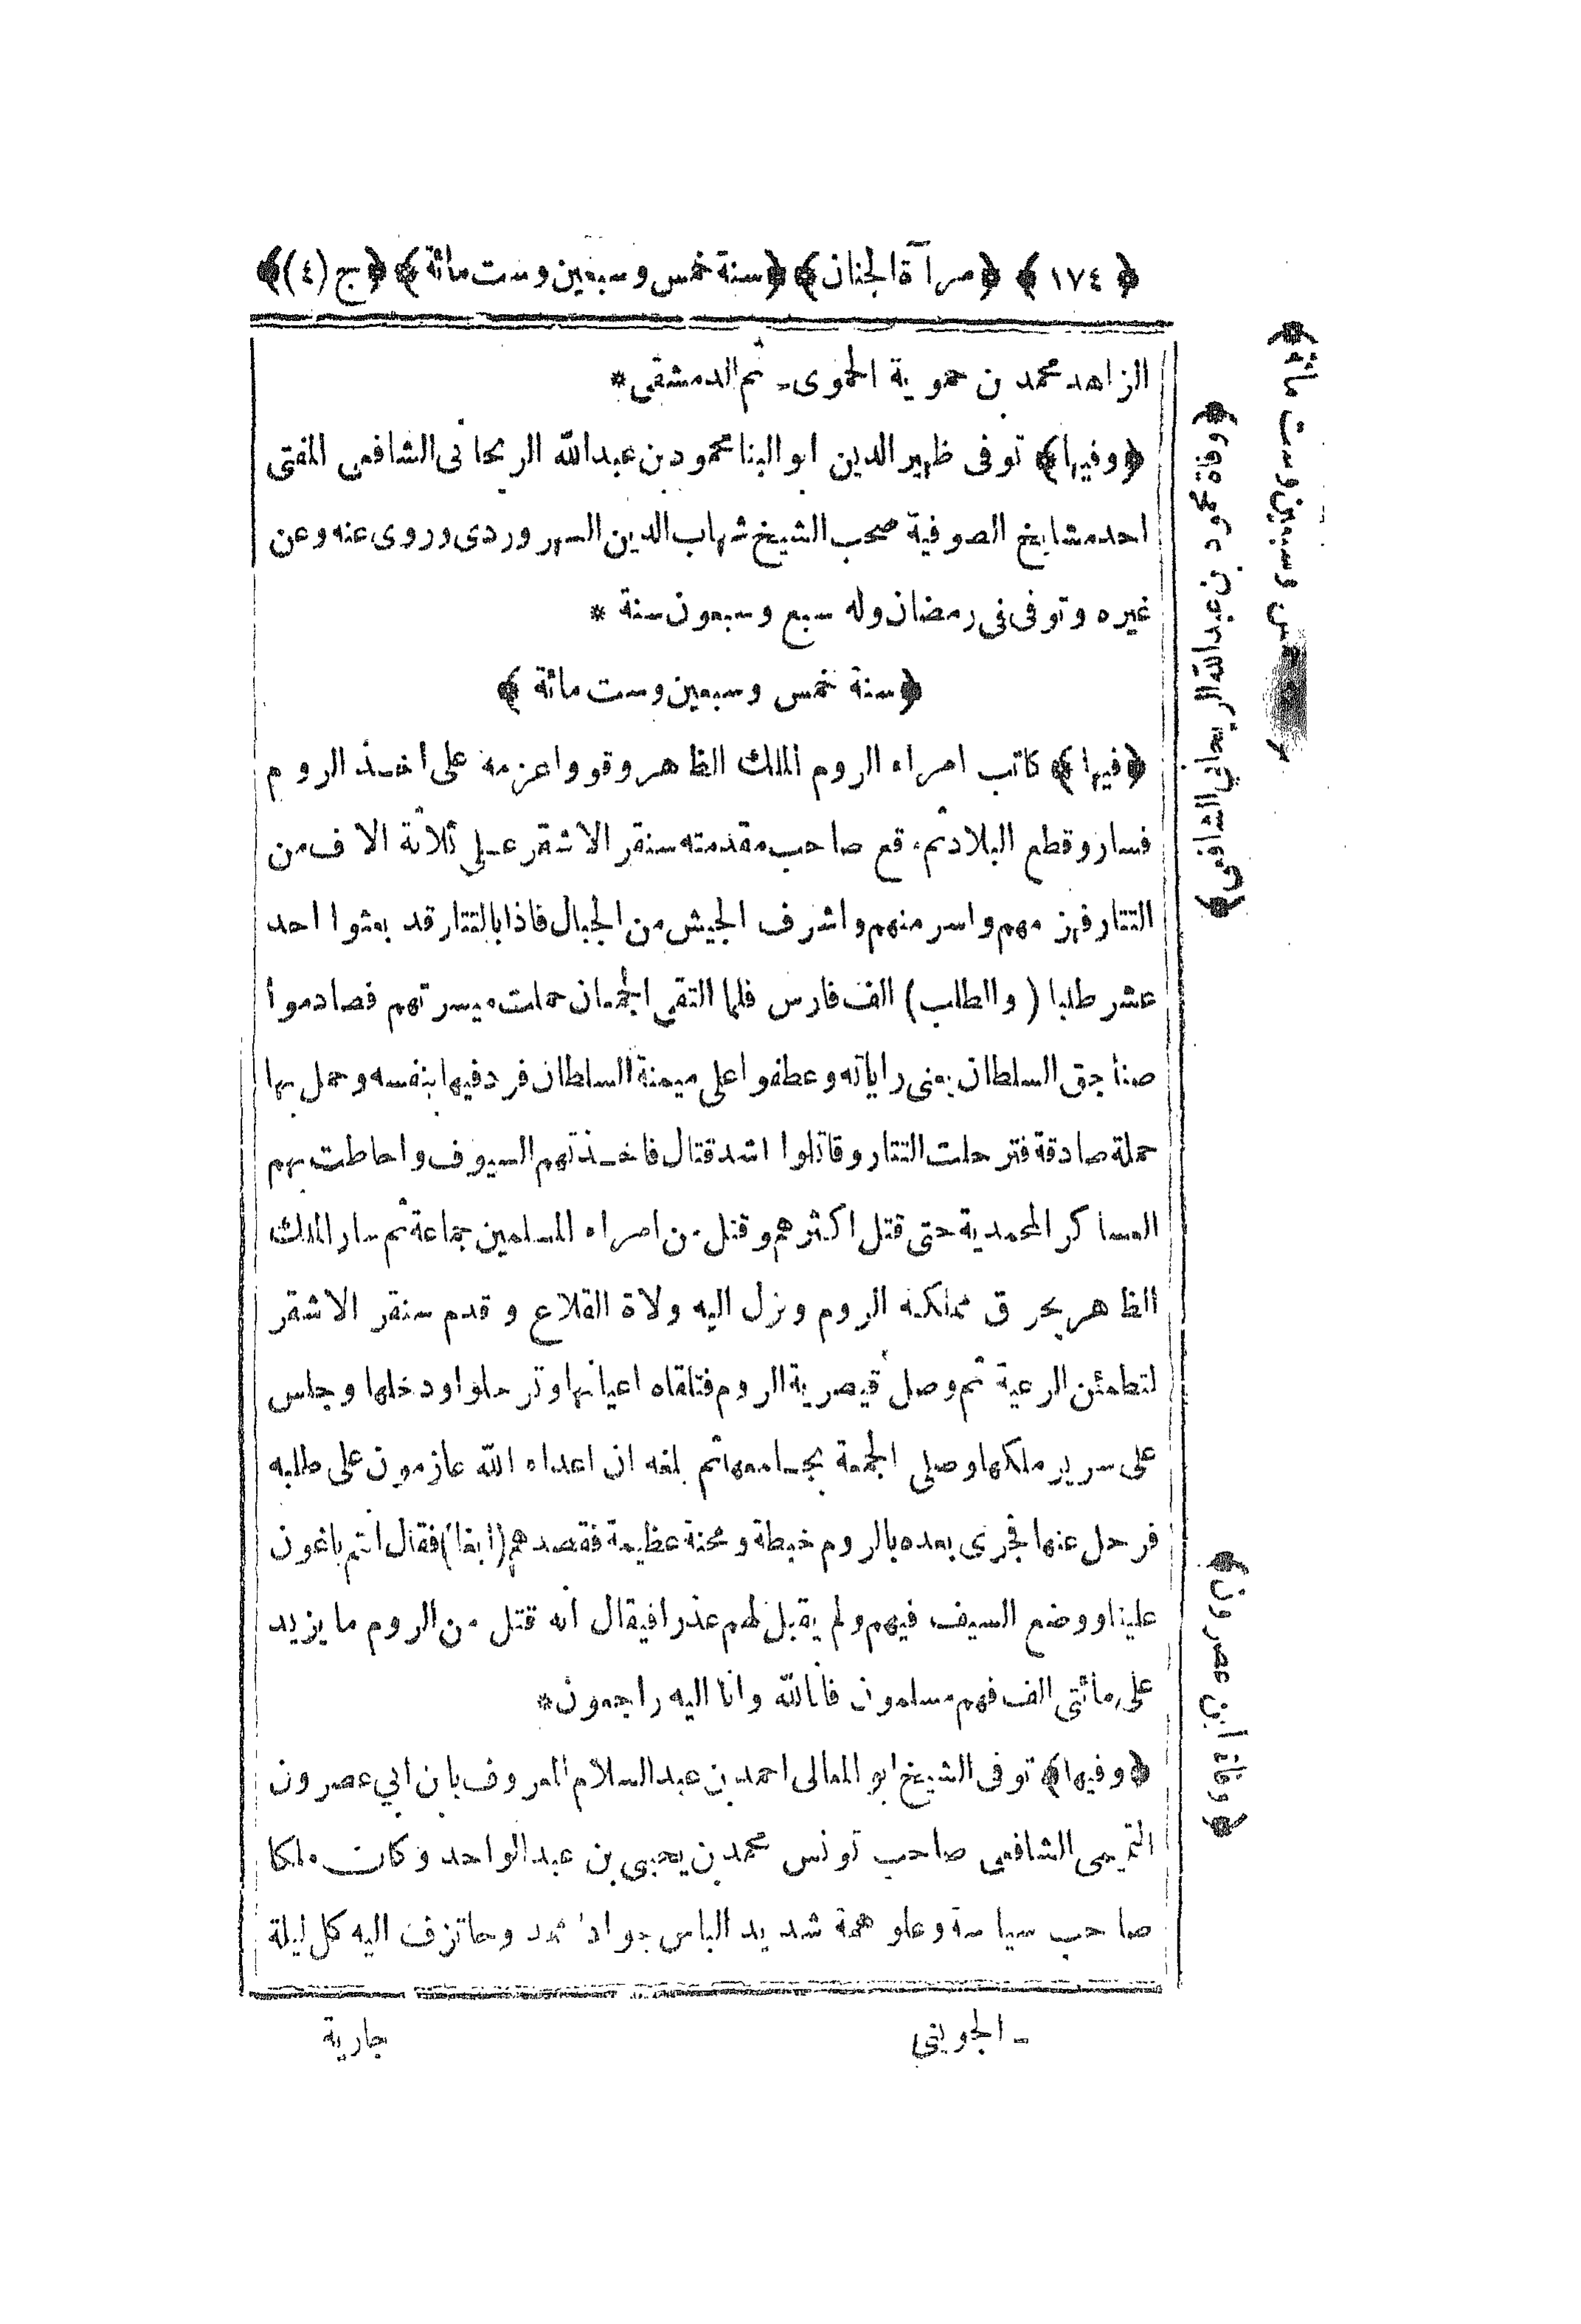 ﴿ ١٧٤ ﴾ ﴿ مرآة الجنان ﴾ ﴿ سنة خمس وسبعين وست مائة ﴾ ﴿ ج (٤) ﴾
الزاهد محمد بن حموية الحموى ـ ثم الدمشقى *
﴿ وفيها ﴾ توفى ظهير الدين ابو البنا محمود بن عبد الله الريحانى الشافعى المفتى
احد مشايخ الصوفية صحب الشيخ شهاب الدين السهروردى وروى عنه وعن
غيره وتوفى فى رمضان وله سبع وسبعون سنة *
﴿ سنة خمس وسبعين وست مائة ﴾
﴿ فيها ﴾ كاتب امراء الروم الملك الظاهر وقووا عزمه على اخذ الروم
فسار وقطع البلاد ثم وقع صاحب مقدمته سنقر الاشقر على ثلاثة الاف من
التتار فهزمهم واسر منهم واشرف الجيش من الجبال فاذا بالتتار قد بعثوا احد
عشر طلبا ( والطلب ) الف فارس فلما التقى الجمعان حملت ميسرتهم فصادموا
صناجق السلطان يعنى راياته وعطفوا على ميمنة السلطان فردفيها بنفسه وحمل بها
حملة صادقة فترحلت التتار وقاتلوا اشد قتال فاخذتهم السيوف واحاطت بهم
العساكر المحمدية حتى قتل اكثرهم وقتل من امراء المسلمين جماعة ثم سار الملك
الظاهر يحرق مملكة الروم ونزل اليه ولاة القلاع وقدم سنقر الاشقر
لتطمئن الرعية ثم وصل قيصرية الروم فتلقاه اعيانها وترحلوا ودخلها وجلس
على سرير ملكها وصلى الجمعة بجامعها ثم بلغه ان اعداء الله عازمون على طلبه
فرحل عنها فجرى بعده بالروم خبطة ومحنة عظيمة فقصدهم (أبغا) فقال انتم باغون
علينا ووضع السيف فيهم ولم يقبل لهم عذرا فيقال انه قتل من الروم ما يزيد
على مائتى الف فهم مسلمون فانا لله وانا اليه راجعون *
﴿ وفيها ﴾ توفى الشيخ ابو المعالى احمد بن عبد السلام المعروف بابن ابي عصرون
التميمى الشافعى صاحب تونس محمد بن يحيى بن عبد الواحد وكان ملكا
صاحب سياسة وعلو همة شديد الباس جوادا وحا تزف اليه كل ليلة
ـ الجوينى
جارية
وست مائة ﴾
﴿ وفاة محمود بن عبد الله الريحاني الشافعى ﴾
﴿ وفاة ابن عصرون ﴾